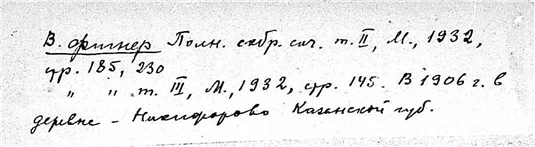 В. Фигнер Полн. собр. соч. т. II, М., 1932,
стр. 185, 230
" " т. III, М., 1932, стр. 145. В 1906 г. в
деревне - Никифорово Казанской губ.